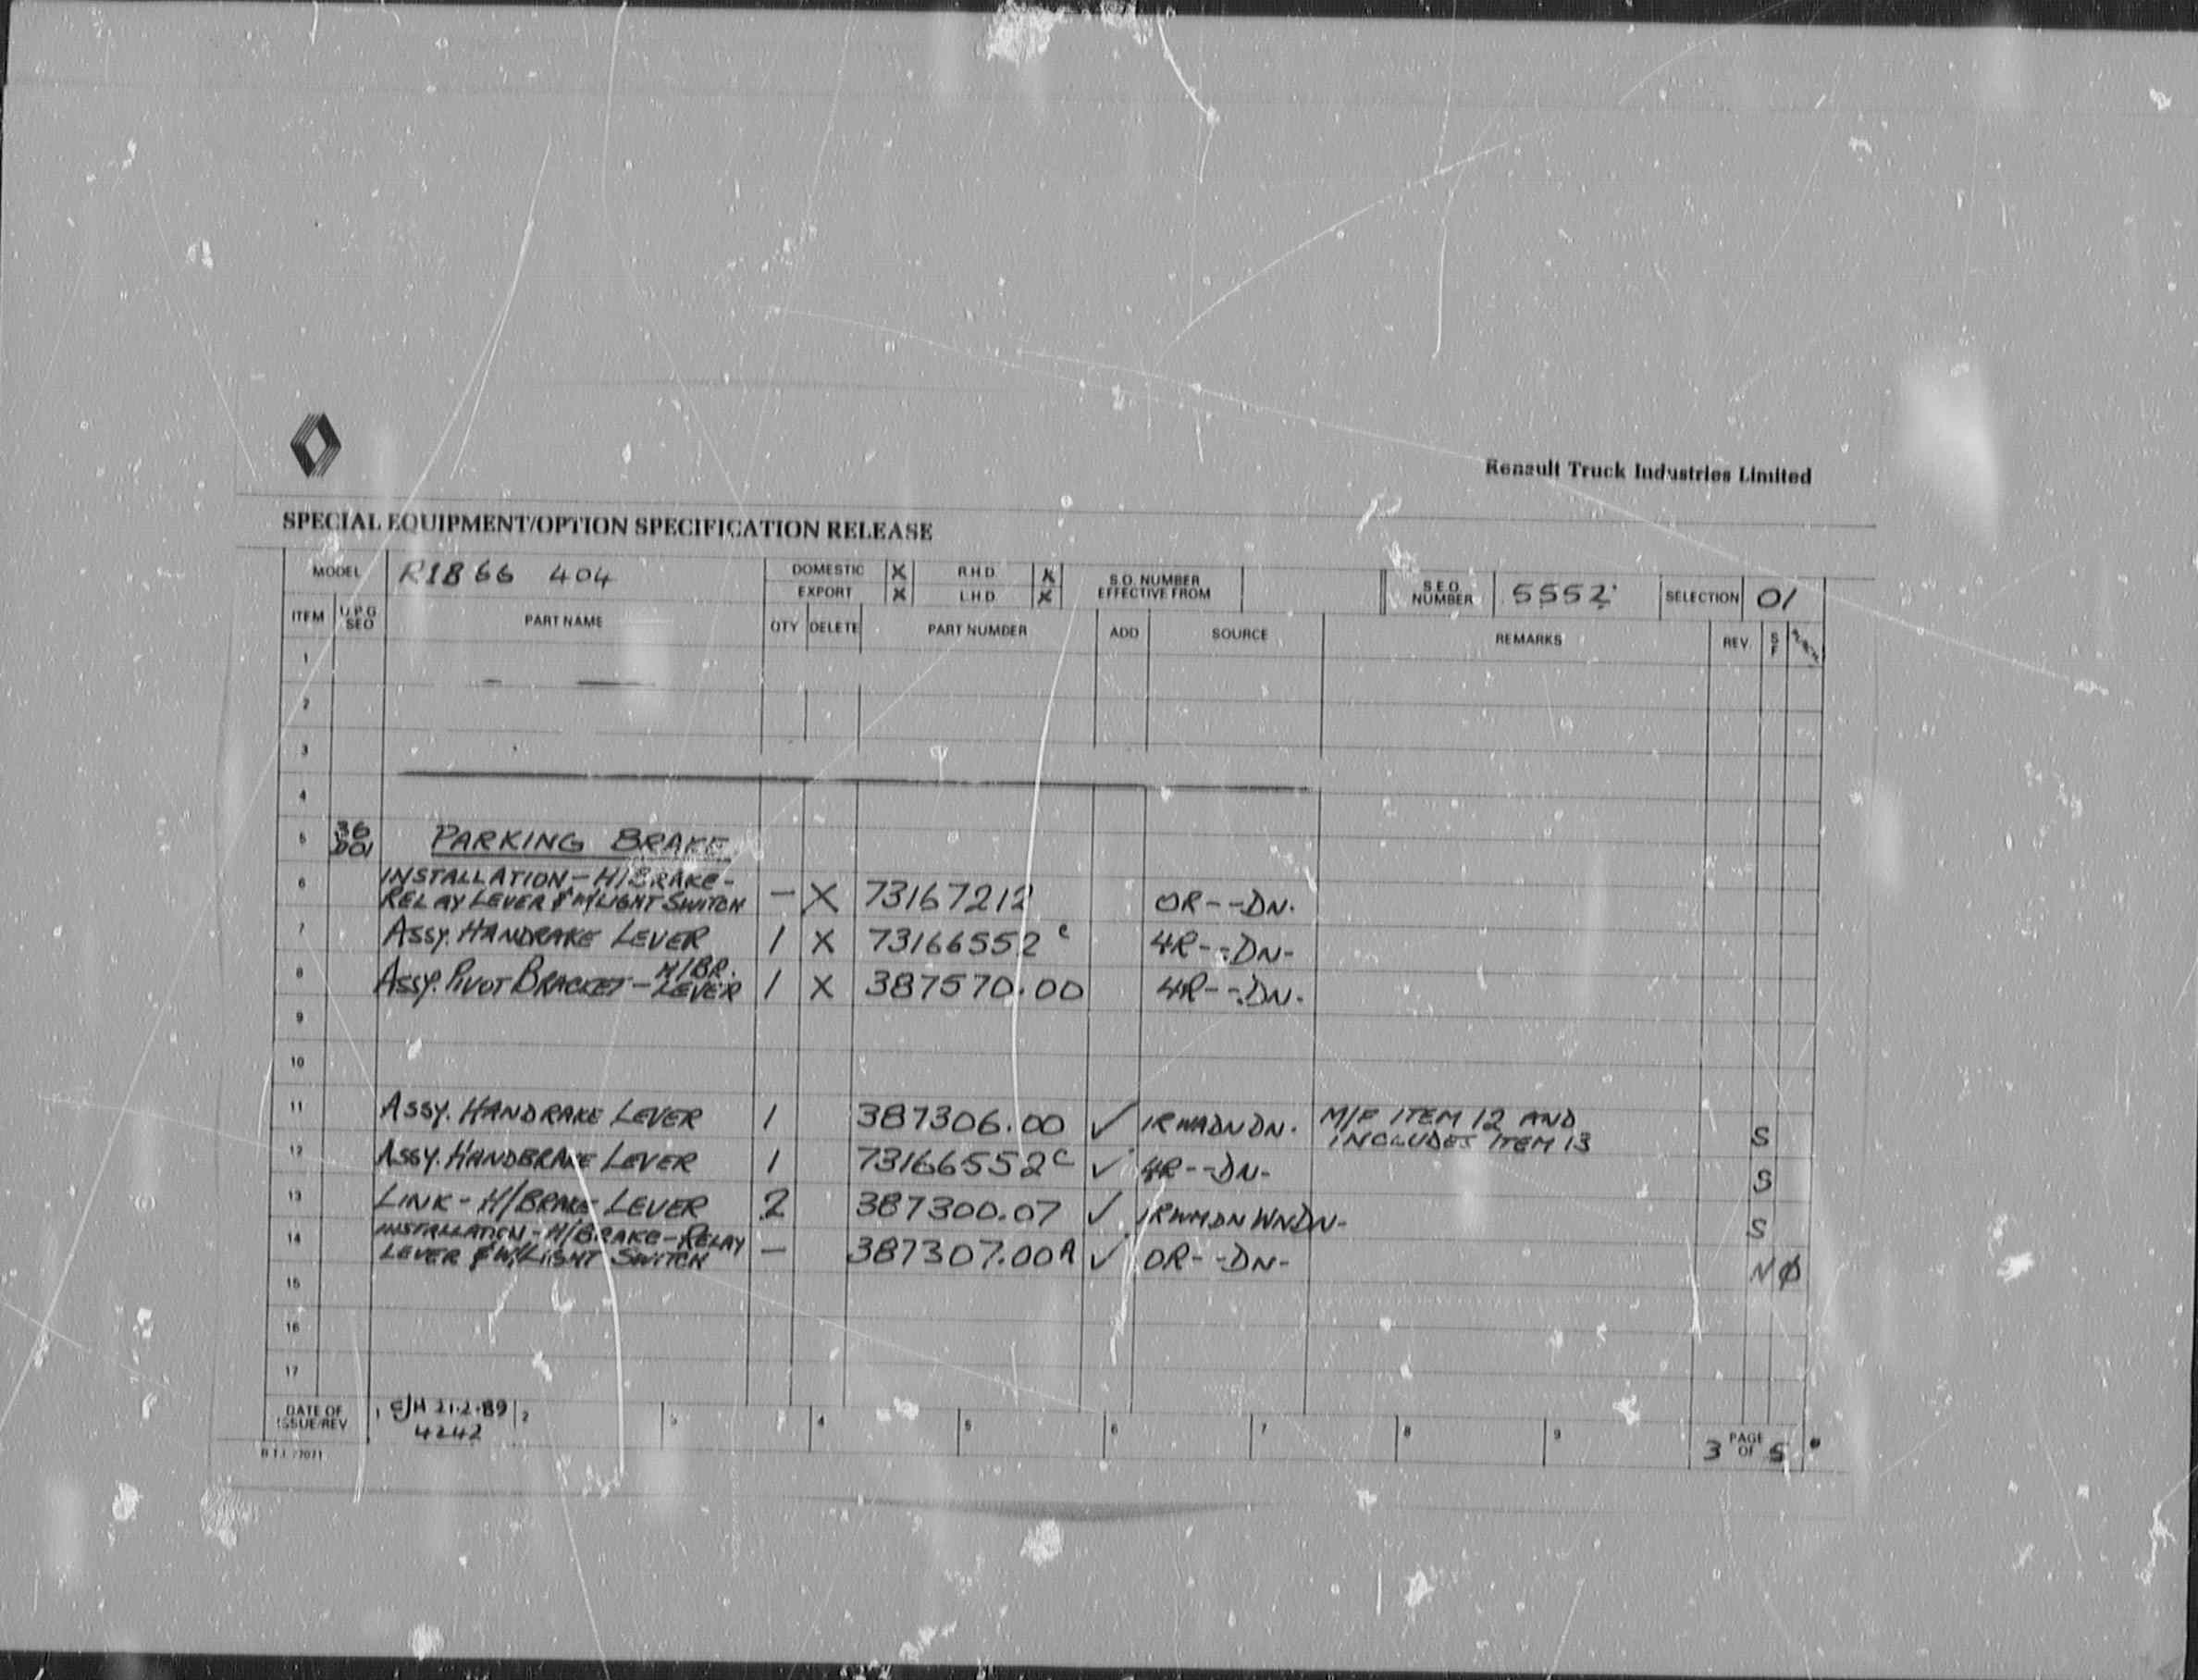 Renault Truck Industries Limited
SPECIAL EQUIPMENT/OPTION SPECIFICATION RELEASE
MODEL R1866 404 DOMESTIC X R.H.D. X S.O. NUMBER EFFECTIVE FROM S.E.O. NUMBER 5552 SELECTION 01
EXPORT X L.H.D. X
ITEM U.P.G SEO PART NAME QTY DELETE PART NUMBER ADD SOURCE REMARKS REV. S F
1
2
3
4
5 36 D01 PARKING BRAKE
6 INSTALLATION - H/BRAKE -
RELAY LEVER & W/LIGHT SWITCH - X 73167212 OR--DN.
7 ASSY. HANDRAKE LEVER 1 X 73166552 C 4R--DN-
8 ASSY. PIVOT BRACKET - H/BR. LEVER 1 X 387570.00 4R--DN.
9
10
11 ASSY. HANDRAKE LEVER 1 387306.00 ✓ IRWADNDN. M/F ITEM 12 AND
INCLUDES ITEM 13 S
12 ASSY. HANDBRAKE LEVER 1 73166552 C ✓ 4R--DN- S
13 LINK - H/BRAKE LEVER 2 387300.07 ✓ S
14 INSTALLATION - H/BRAKE - RELAY
LEVER & W/LIGHT SWITCH - 387307.00A ✓ OR--DN- N Ø
15
16
17
DATE OF ISSUE/REV 1 21.2.89 2 3 4 5 6 7 8 9 3 PAGE OF 5
4242